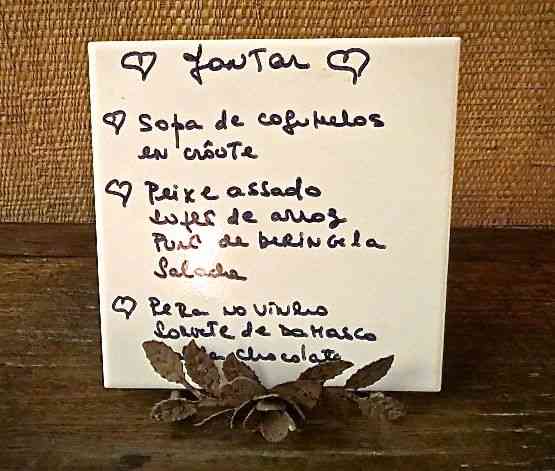 Jantar
Sopa de cogumelos
en croûte
Peixe assado
Suflê de arroz
Purê de beringela
Salada
Pera no vinho
Sorvete de Damasco
chocolate